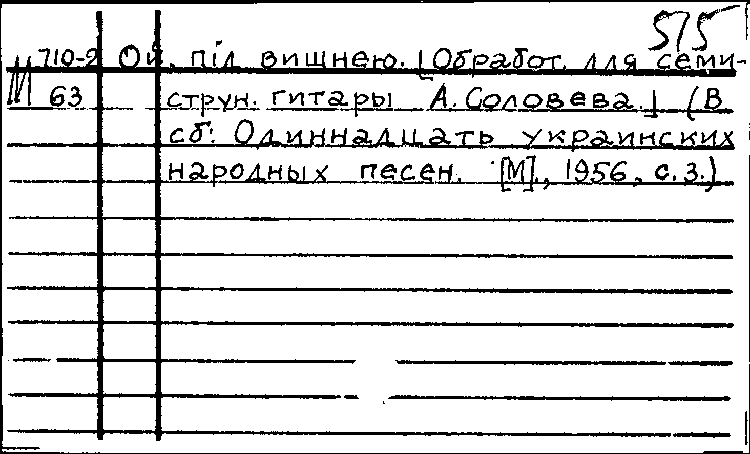 515
710-2 Ой, під вишнею. [Обработ. для семи-
М 63 струн. гитары А. Соловева.] (В
сб: Одиннадцать украинских
народных песен. [М]., 1956, с. 3.)